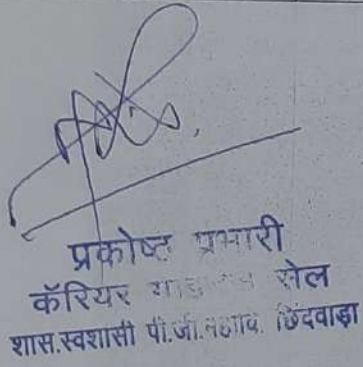 प्रकोष्ठ प्रभारी
कॅरियर सेल
शास.स्वशासी पी.जी. छिंदवाड़ा